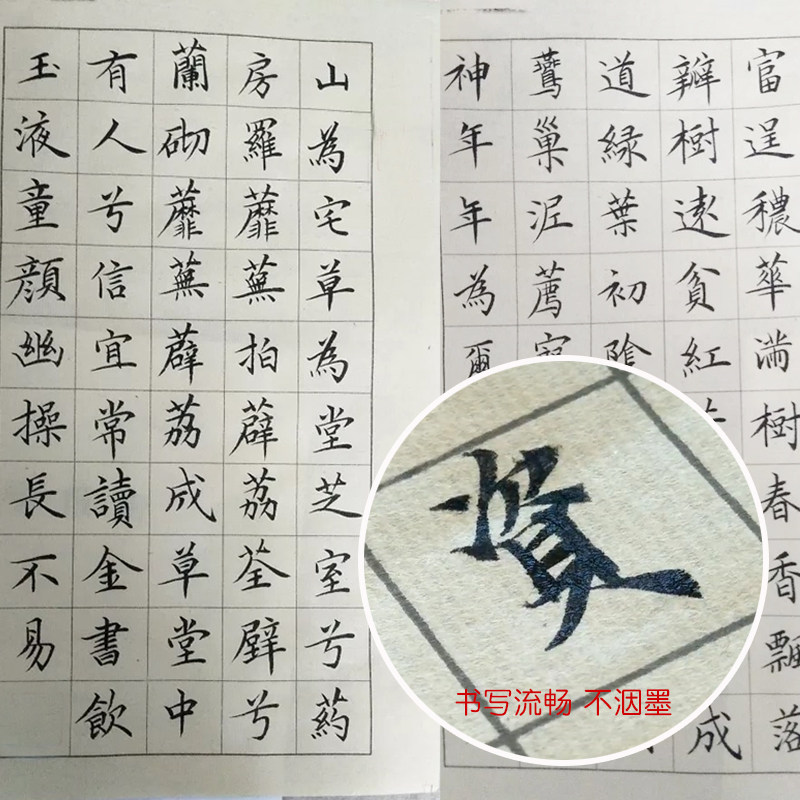 山為宅草為堂芝室兮葯
房羅蘼蕪拍薜荔荃壁兮
蘭砌蘼蕪薜荔成草堂中
有人兮信宜常讀金書飲
玉液童顏幽操長不易
富逞穠華滿樹春香飄落
瓣樹遠貧紅 成
道綠葉初陰
鶯巢泥薦
神年年為爾
书写流畅 不洇墨